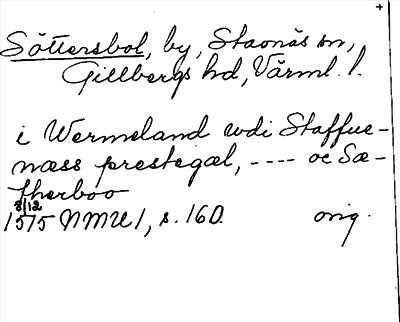 +
Sättersbol, by, Stavnäs sn,
Gillbergs hd, Värml. l.
i Wermeland udi Staffue-
næss prestegæl, ---- oc Sæ-
therboo
8/12
1575 NMU 1, s. 160. orig.